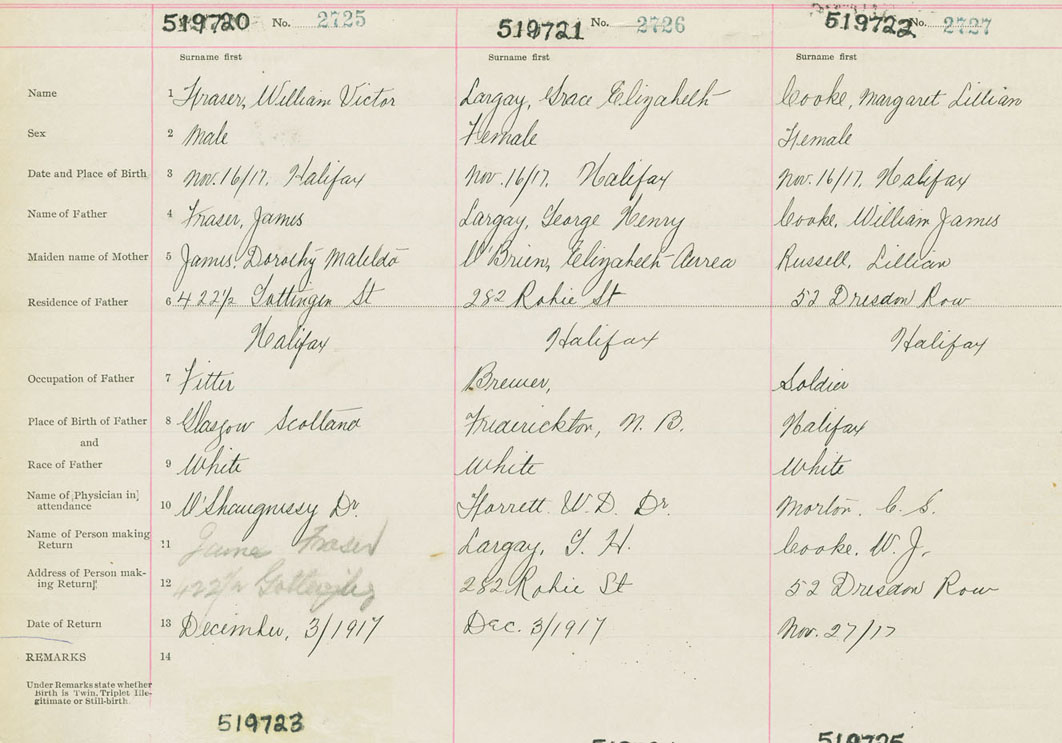 519720 No. 2725 519721 No. 2726 519722 No. 2727
Surname first Surname first Surname first
Name 1 Fraser, William Victor Largay, Grace Elizabeth Cooke, Margaret Lillian
Sex 2 Male Female Female
Date and Place of Birth 3 Nov. 16/17. Halifax Nov. 16/17. Halifax Nov. 16/17. Halifax
Name of Father 4 Fraser, James Largay, George Henry Cooke, William James
Maiden name of Mother 5 James. Dorothy Matilda O'Brien, Elizabeth Russell, Lillian
Residence of Father 6 422½ Gottingen St 282 Robie St 52 Dresdon Row
Halifax Halifax Halifax
Occupation of Father 7 Fitter Brewer, Soldier
Place of Birth of Father 8 Glasgow Scotland Frederickton, N. B. Halifax
and
Race of Father 9 White White White
Name of Physician in 10 O'Shaugnissy Dr. Forrett W. D. Dr. Morton. C. S.
attendance
Name of Person making 11 James Fraser Largay, G. H. Cooke. W. J.
Return
Address of Person mak- 12 422½ Gottengen 282 Robie St 52 Dresdon Row
ing Return
Date of Return 13 December, 3/1917 Dec. 3/1917 Nov. 27/17
REMARKS 14
Under Remarks state whether
Birth is Twin, Triplet Ille-
gitimate or Still-birth.
519723 519725